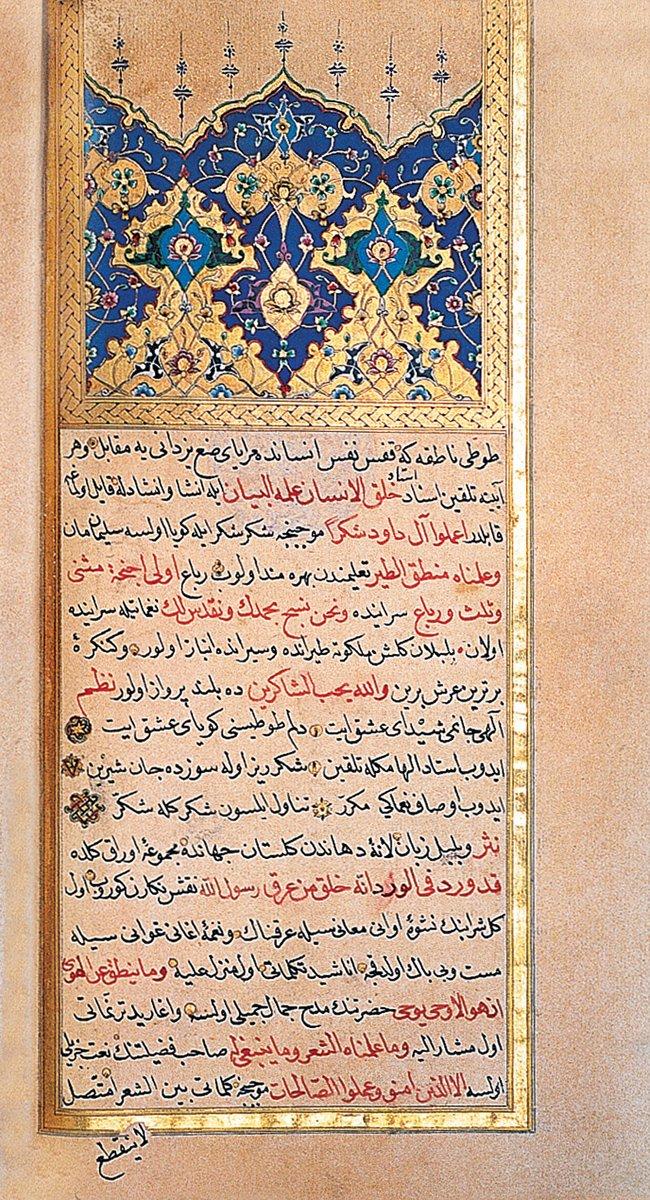 طوطی ناطقه که قفس نفس انساند مرایای صنع یزدانی یه مقابل وهر
آینه تلقین استاد خلق الانسان علمه البیان ایله انشا وانشادله قایل اولغه
قابلدر اعملوا آل داود شکرًا موجبنجه شکر شکر ایله کویا اولسه سلیمان مان
وعلمناه منطق الطیر تعلیمندن بهره مند اولوب رباع اولی اجنحة مثنی
وثلث ورباع سراینده ونحن نسبح بحمدك ونقدس لك نغماتیله سراینده
اولان بلبلان کلشن ملکوته طیرانده وسیرانده انباز اولور وکنکرۀ
برترین عرش برین والله یحب الشاکرین ده بلند پرواز اولور نظم
الهی جانمی شیدای عشق ایت دلم طوطیسنی کویای عشق ایت
ایدوب استاد الهامکله تلقین شکر ریز اوله سوزده جان شیرین
ایدوب اوصاف نعماکی مکرّر تناول ایلسون شکرکله شکّر
نثر وبلبل زبان لانۀ دهاندن کلستان جهانده مجموعۀ اوراق کلده
قد ورد فی الورد انه خلق من عرق رسول الله نقشن نکارن کوروب اول
کل شرابنك نشوۀ اوانی معانی سیله عرقناك ونغمۀ اغانی غوانی سیله
مست وبی باك اولدقجه اناشید تکلماتی اول منزل علیه وما ینطق عن الهوی
ان هو الا وحی یوحی حضرتنك مدح جمال جمیلی اولسه واغارید ترنماتی
اول مشار الیه وما علمناه الشعر وما ینبغی له صاحب فضیلتنك نعت جزیلی
اولسه الا الذین امنو وعملوا الصالحات موجبنجه کلماتی بین الشعرا متصل
لاینقطع